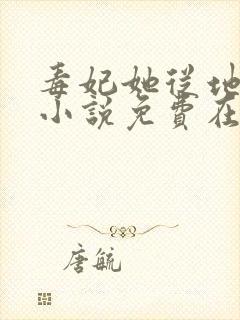 毒妃她从地
小說免費在
唐毓